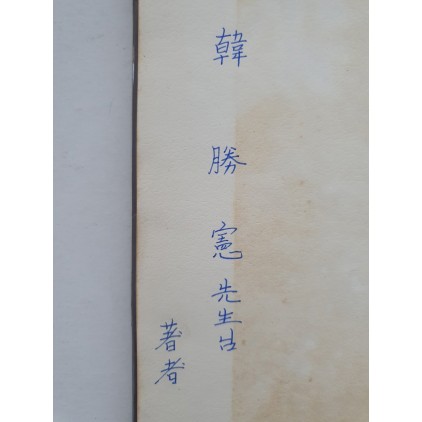 韓勝憲先生
著者